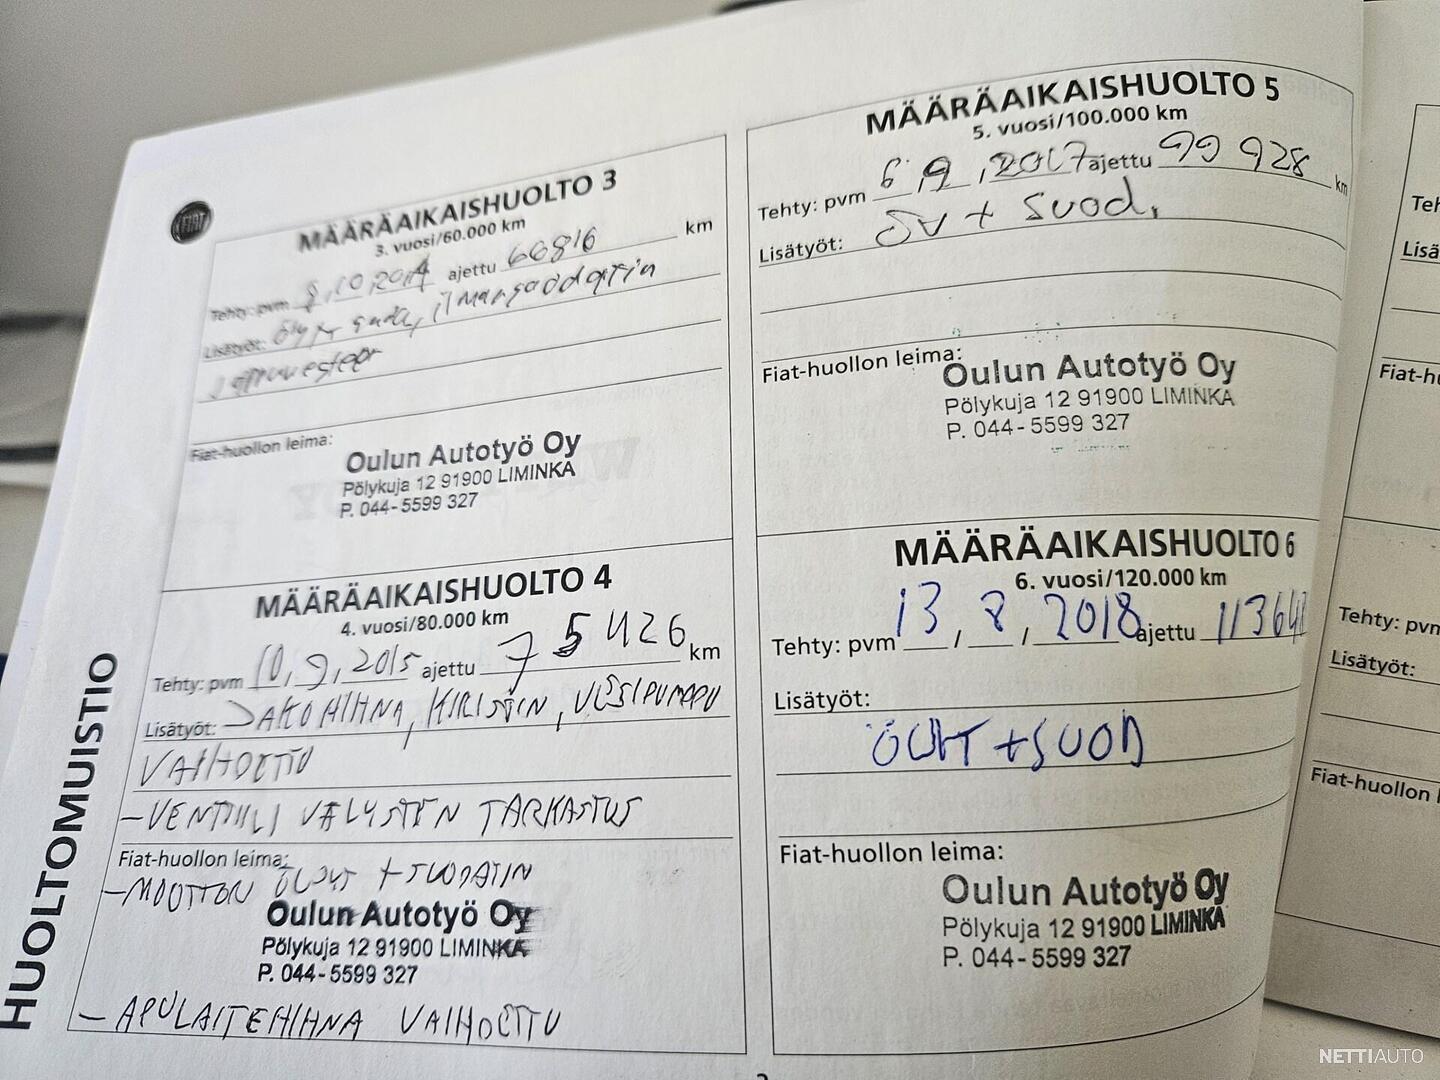 HUOLTOMUISTIO
FIAT
MÄÄRÄAIKAISHUOLTO 3
3. vuosi/60.000 km
Tehty: pvm 8.10.2014 ajettu 66816 km
Lisätyöt: ilmansuodatin
Fiat-huollon leima:
Oulun Autotyö Oy
Pölykuja 12 91900 LIMINKA
P. 044-5599 327
MÄÄRÄAIKAISHUOLTO 4
4. vuosi/80.000 km
Tehty: pvm 10,9,2015 ajettu 75426 km
Lisätyöt: JAKOHIHNA, KIRISTIN, VESIPUMPPU
VAIHDETTU
-VENTTIILI VÄLYSTEN TARKASTUS
Fiat-huollon leima:
-MOOTTORI ÖLJYT +SUODATIN
Oulun Autotyö Oy
Pölykuja 12 91900 LIMINKA
P. 044-5599 327
- APULAITEHIHNA VAIHDETTU
MÄÄRÄAIKAISHUOLTO 5
5. vuosi/100.000 km
Tehty: pvm 6.9.2017 ajettu 99 928 km
Lisätyöt: ÖV + Suod.
Fiat-huollon leima:
Oulun Autotyö Oy
Pölykuja 12 91900 LIMINKA
P. 044-5599 327
MÄÄRÄAIKAISHUOLTO 6
6. vuosi/120.000 km
Tehty: pvm 13/8/2018 ajettu
Lisätyöt:
ÖLJYT +SUOD
Fiat-huollon leima:
Oulun Autotyö Oy
Pölykuja 12 91900 LIMINKA
P. 044-5599 327
Teh
Lisä
Fiat-hu
Tehty: pvm
Lisätyöt:
Fiat-huollon l
NETTIAUTO